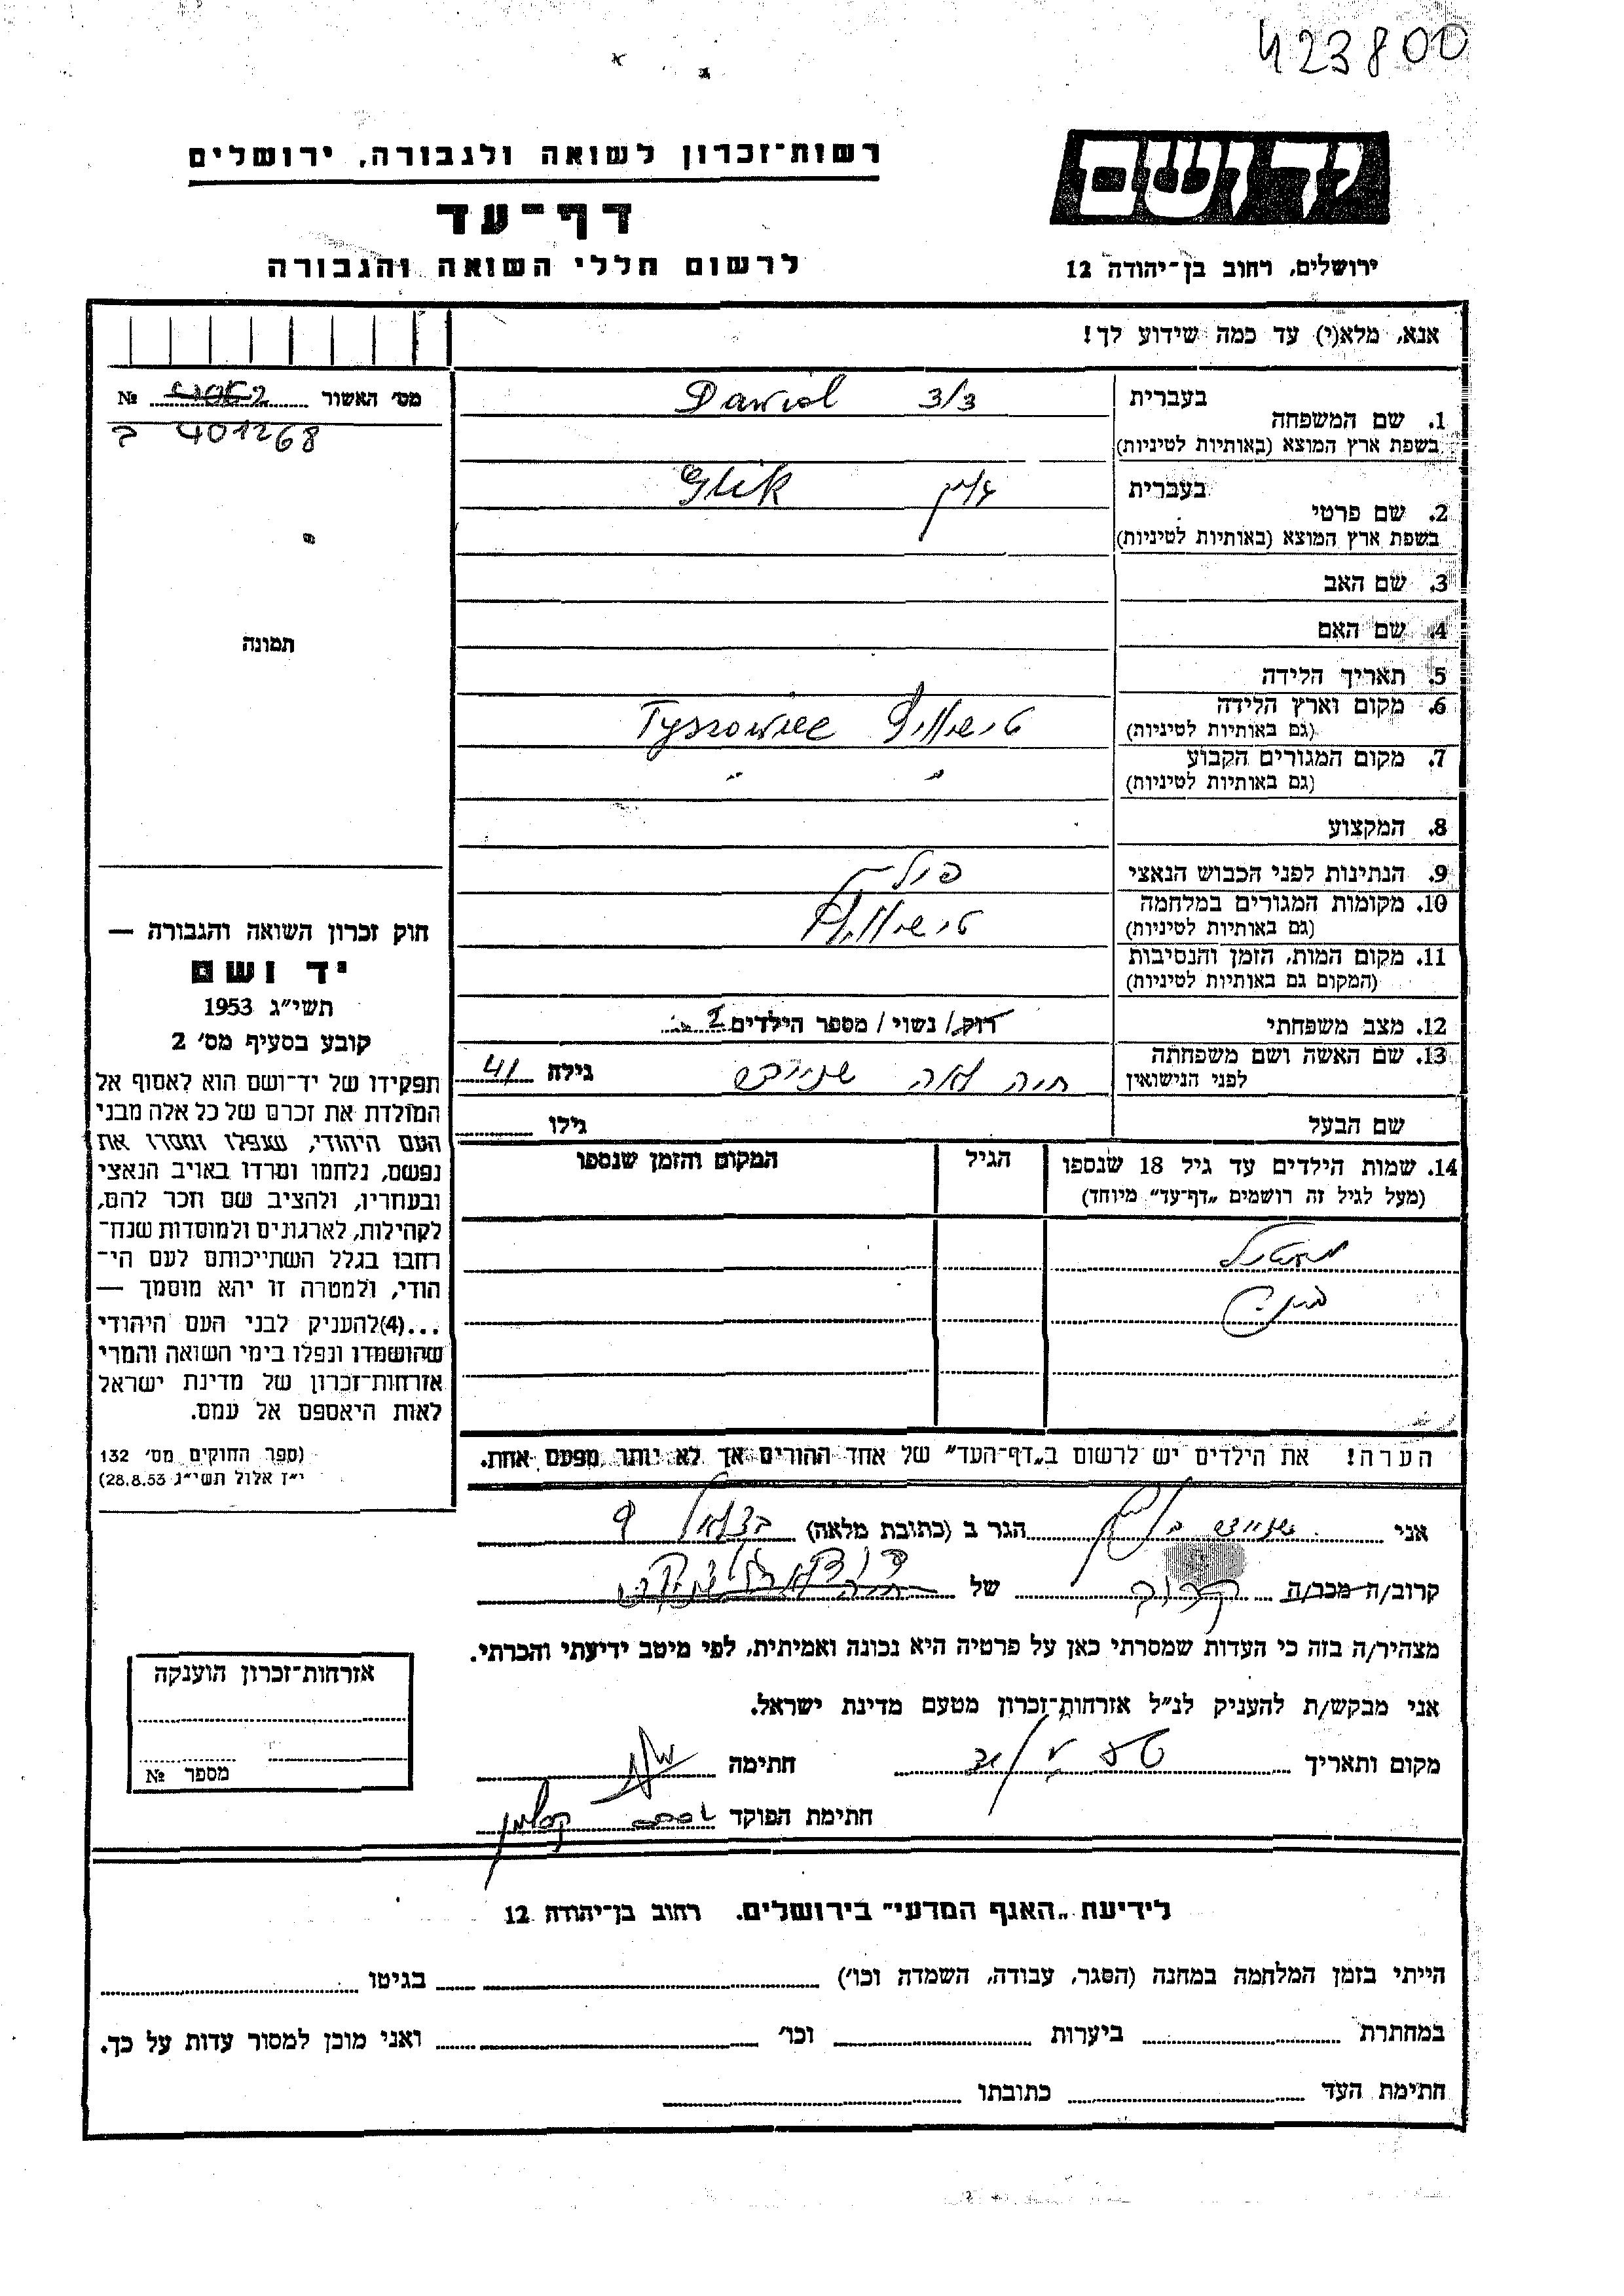 423800
יד ושם
רשות־זכרון לשואה ולגבורה, ירושלים
דף־עד
לרשום חללי השואה והגבורה
ירושלים, רחוב בן־יהודה 12
אנא, מלא(י) עד כמה שידוע לך!
מס׳ האשור № 
401268
תמונה
1. שם המשפחה
בעברית דוד Dawid
בשפת ארץ המוצא (באותיות לטיניות)
2. שם פרטי
בעברית גליק Glik
בשפת ארץ המוצא (באותיות לטיניות)
3. שם האב
4. שם האם
5. תאריך הלידה
6. מקום וארץ הלידה
(גם באותיות לטיניות) טישוביץ Tyszowiec
7. מקום המגורים הקבוע
(גם באותיות לטיניות) " "
8. המקצוע
9. הנתינות לפני הכבוש הנאצי פולנ
10. מקומות המגורים במלחמה
(גם באותיות לטיניות) טישוביץ
11. מקום המות, הזמן והנסיבות
(המקום גם באותיות לטיניות)
12. מצב משפחתי רוק/ נשוי / מספר הילדים 2
13. שם האשה ושם משפחתה
לפני הנישואין חיה לאה גילה 41
שם הבעל גילו
14. שמות הילדים עד גיל 18 שנספו
(מעל לגיל זה רושמים „דף־עד” מיוחד)
הגיל
המקום והזמן שנספו
הערה! את הילדים יש לרשום ב„דף־העד” של אחד ההורים אך לא יותר מפעם אחת.
חוק זכרון השואה והגבורה —
יד ושם
תשי״ג 1953
קובע בסעיף מס׳ 2
תפקידו של יד־ושם הוא לאסוף אל
המולדת את זכרם של כל אלה מבני
העם היהודי, שנפלו ומסרו את
נפשם, נלחמו ומרדו באויב הנאצי
ובעוזריו, ולהציב שם וזכר להם,
לקהילות, לארגונים ולמוסדות שנח־
רבו בגלל השתייכותם לעם הי־
הודי, ולמטרה זו יהא מוסמך —
...(4)להעניק לבני העם היהודי
שהושמדו ונפלו בימי השואה והמרי
אזרחות־זכרון של מדינת ישראל
לאות היאספם אל עמם.
(ספר החוקים מס׳ 132
י״ז אלול תשי״ג 28.8.53)
אני הגר ב (כתובת מלאה) בצלאל 9
קרוב/ה מכר/ה קרוב של
מצהיר/ה בזה כי העדות שמסרתי כאן על פרטיה היא נכונה ואמיתית, לפי מיטב ידיעתי והכרתי.
אני מבקש/ת להעניק לנ״ל אזרחות־זכרון מטעם מדינת ישראל.
מקום ותאריך חתימה
חתימת הפוקד
אזרחות־זכרון הוענקה
מספר №
לידיעת „האגף המדעי” בירושלים. רחוב בן־יהודה 12
הייתי בזמן המלחמה במחנה (הסגר, עבודה, השמדה וכו׳) בגיטו
במחתרת ביערות וכו׳ ואני מוכן למסור עדות על כך.
חתימת העד כתובתו